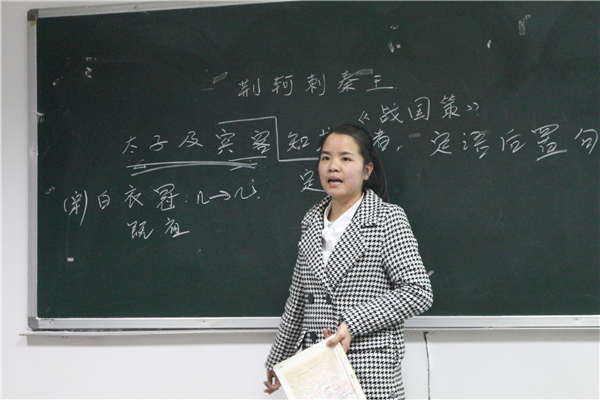 荆轲刺秦王
《战国策》
太子及宾客知 者，定语后置句
定
(穿)白衣冠. n→v.